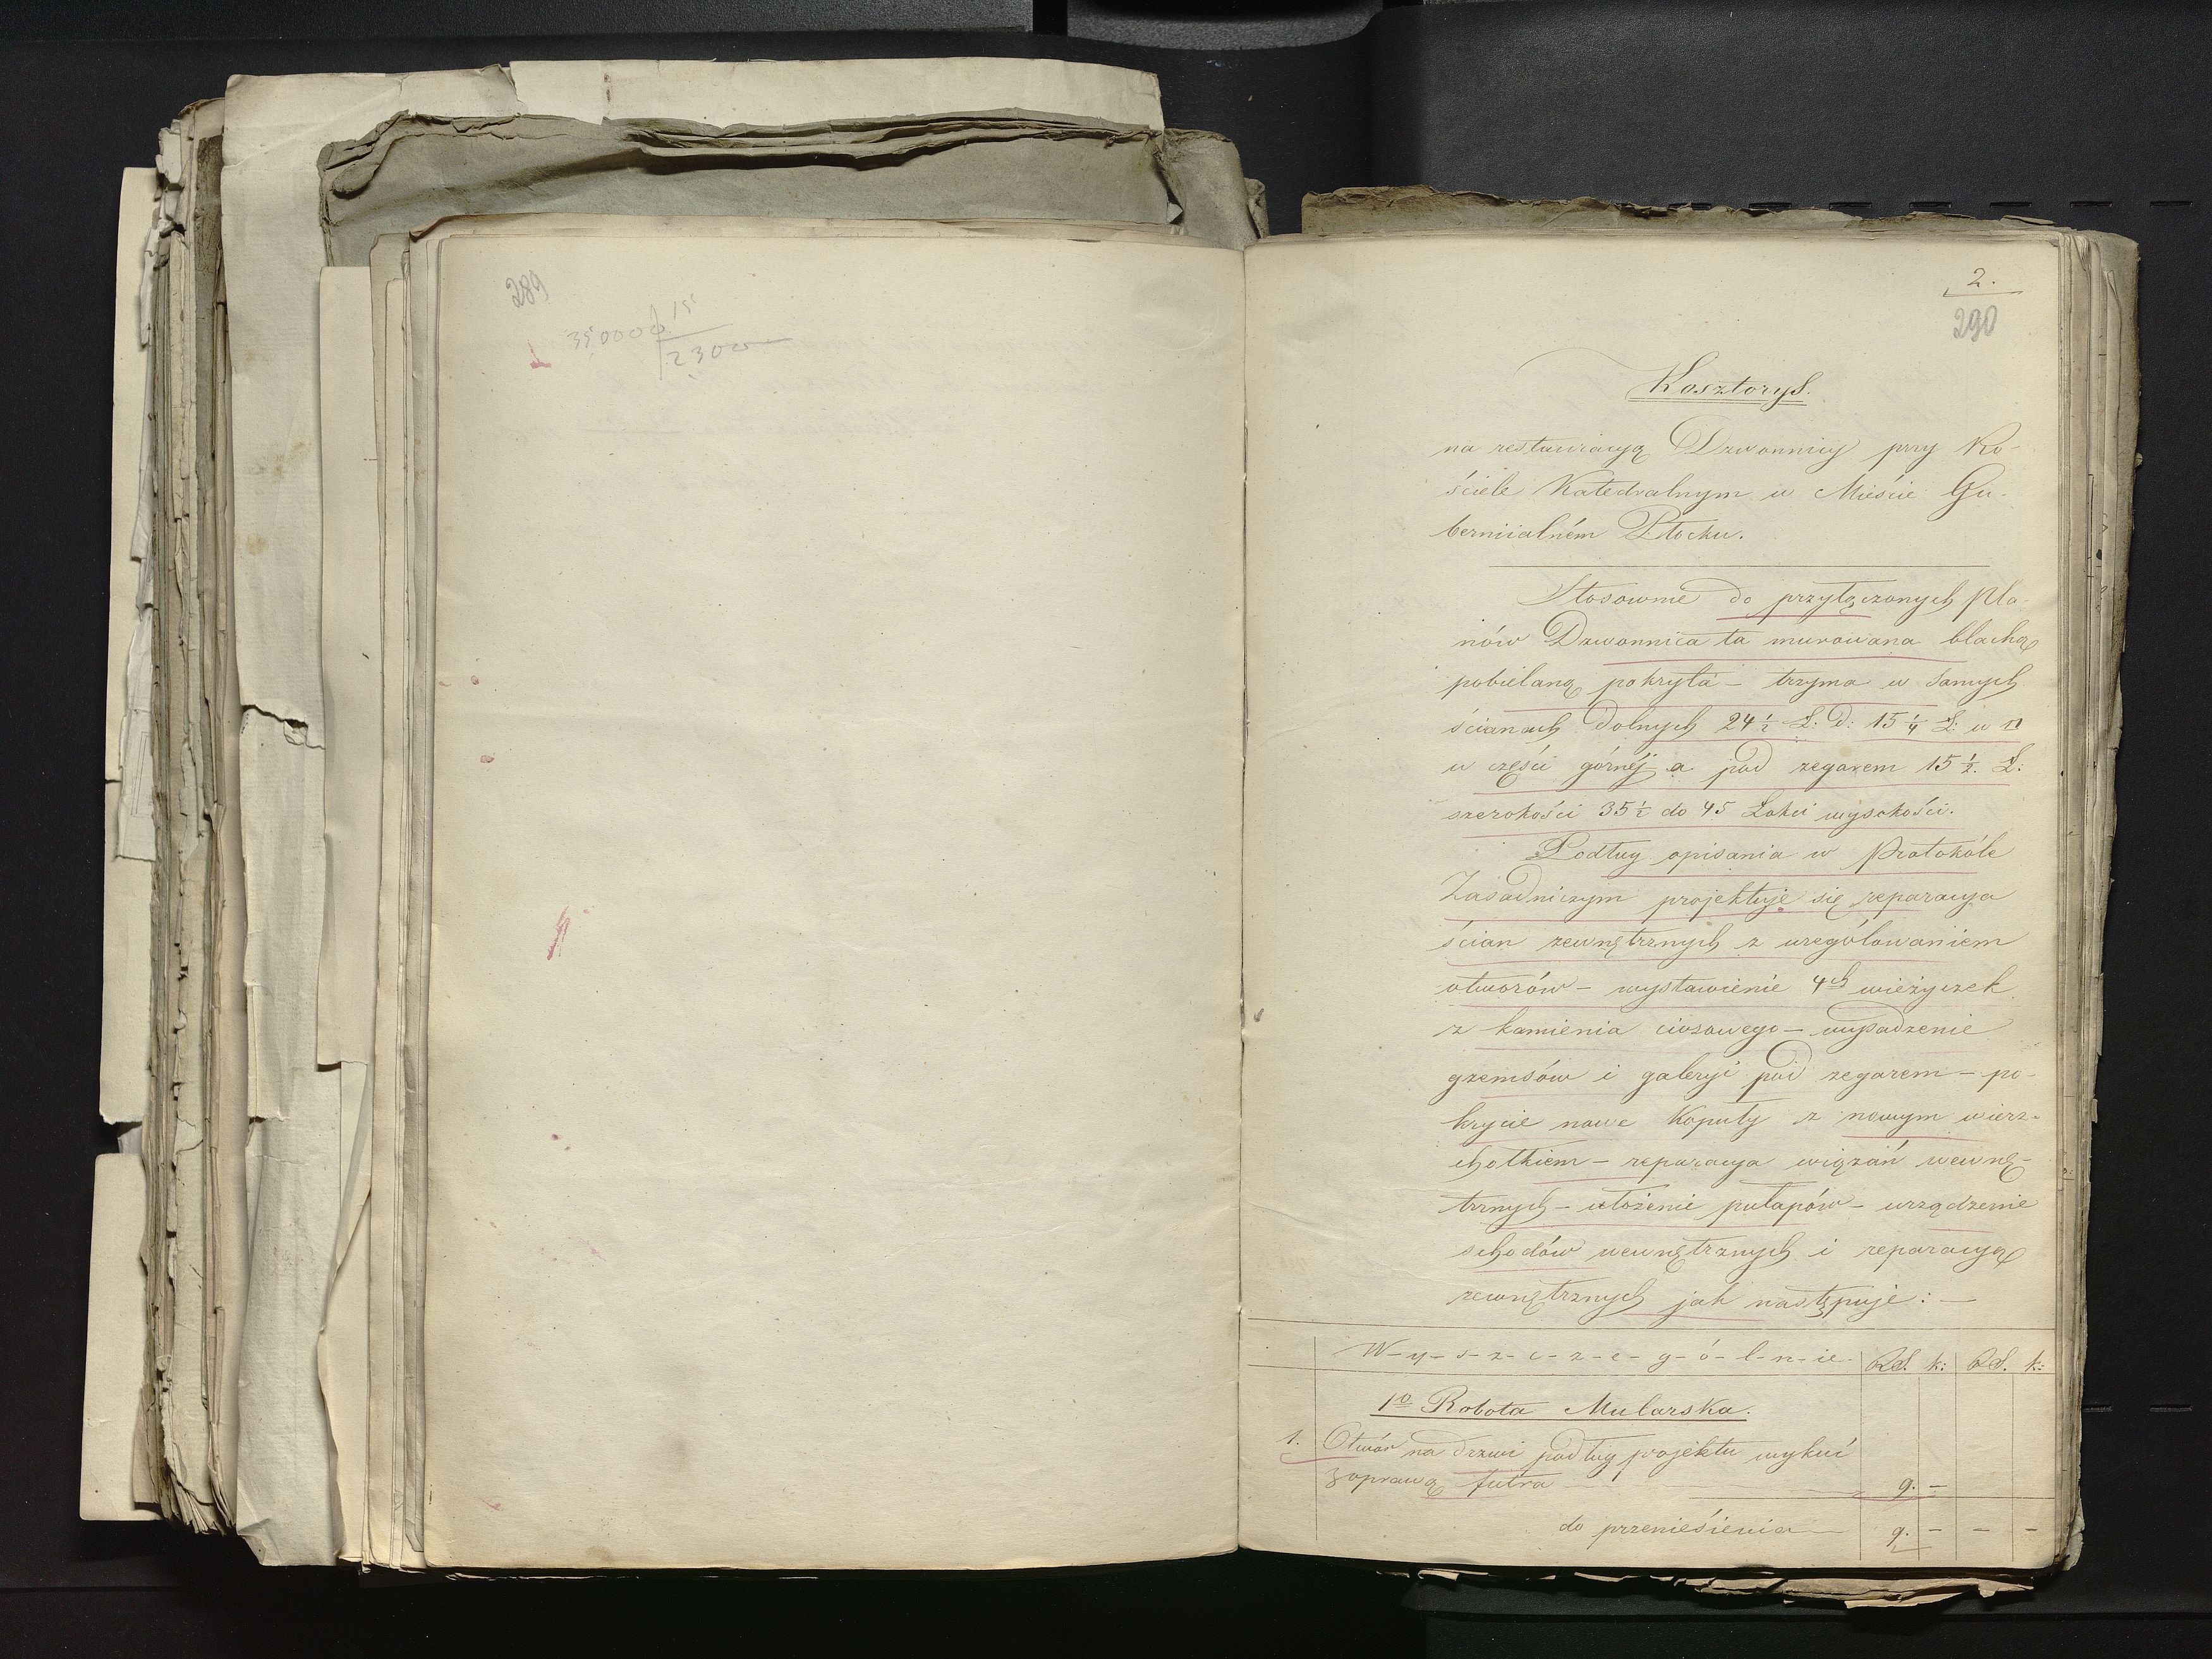 289
35,0000 15
2300
2.
290
Kosztorys.
na restauracyą Dzwonnicy przy Ko-
ściele Katedralnym w Mieście Gu-
bernialném Płocku.
Stosownie do przyłączonych pla-
nów Dzwonnica ta murowana blachą
pobielaną pokryta – trzyma w samych
ścianach dolnych 24 1/2 Ł: D: 15 1/4 Ł: w
w części górnéj a pod zegarem 15 1/2. Ł:
szerokości 35 1/2 do 45 Łokci wysokości.
Podług opisania w Protokóle
Zasadniczym projektuje się reparacya
ścian zewnętrznych z urególowaniem
otworów – wystawienie 4ch wieżyczek
z kamienia ciosowego – wysadzenie
gzemsów i galeryi pod zegarem – po-
krycie nowe Kopuły z nowym wierz-
chołkiem – reparacya wiązań wewnę-
trznych – ułożenie pułapów – urządzenie
schodów wewnętrznych i reparacyą
zewnętrznych jak następuje: –
W-y-s-z-c-z-e-g-ó-l-n-ie. RS. k: RS. k:
1o Robota Mularska.
1. Otwór na drzwi podług projektu wykuć
z oprawą futra 9. –
do przeniesienia 9. – – –